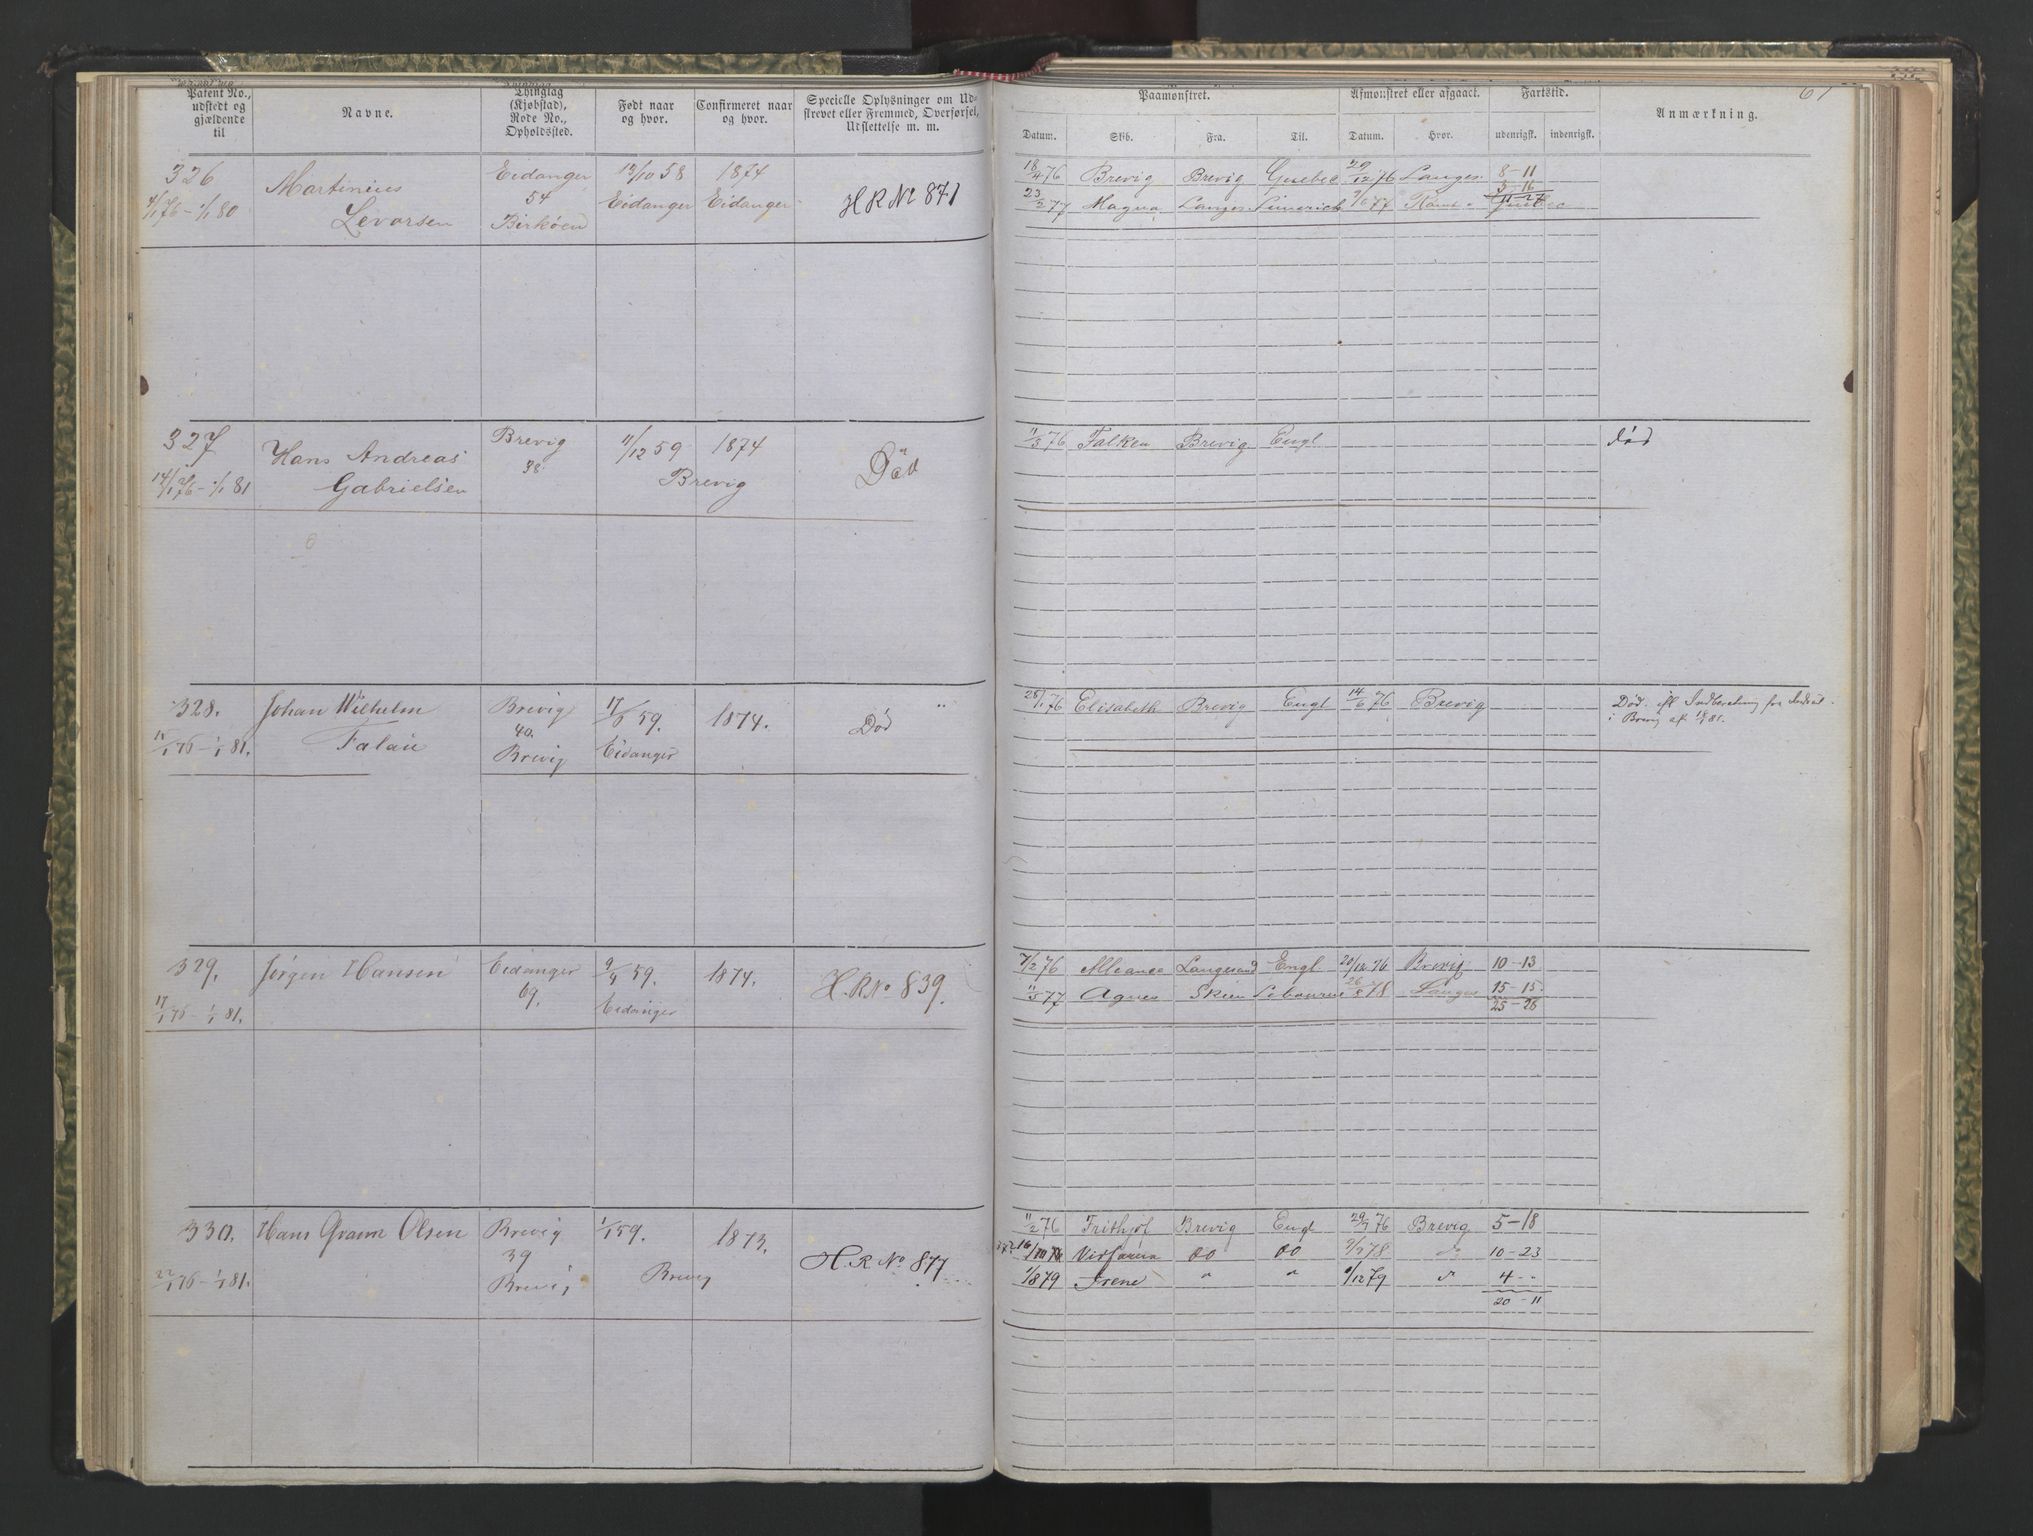 Patent No.,
udstedt og
gjældende
til
Navne.
Thinglag
(Kjøbstad),
Rode No.,
Opholdssted.
Født naar
og hvor.
Confirmeret naar
og hvor.
Specielle Oplysninger om Ud-
strevet eller Fremmed, Overførsel,
Udslettelse m. m.
326
4/1 76 - 1/1 80
Martinius
Levorsen
Eidanger
54
Birkøen
13/10 58
Eidanger
1874
Eidanger
H R No 871
327
14/1 76 - 1/1 81
Hans Andreas
Gabrielsen
Brevig
38
11/12 59
1874
Brevig
Död
328.
1/1 81.
Johan Wilhelm
Falan
Brevig
40.
Brevig
59.
Eidanger
1874.
Død
329.
17/1 76 - 1/1 81.
Jørgen Hansen
Eidanger
69.
9/4 59.
Eidanger
1874.
H. R No 839.
330.
22/1 76 - 1/1 81.
Hans Gram Olsen
Brevig
39
Brevig
1/1 59.
1873.
Brevig
H. R No 877
61
Paamønstret.
Afmønstret eller afgaaet.
Fartstid.
Anmærkning.
Datum.
Skib.
Fra.
Til.
Datum.
Hvor.
udenrigsk.
indenrigsk.
18/4 76 Brevig Brevig Quebec 29/12 76 Langes. 8-11
23/2 77 Magna Langes Limerick
11/3 76 Falken Brevig Engl död
28/1 76 Elisabeth Brevig Engl 14/6 76 Brevig Død. ifl Indberetning fra
i Brevig af
7/2 76 Alliance Langesund Engl 20/12 76 Brevig 10-13
11/5 77 Agnes Skien 26/8 78 Langes 15-15
25-28
11/2 76 Frithjof Brevig Engl 29/7 76 Brevig 5-18
16/10 76 do do 10-23
1/8 79 Irene " " /12 79 4 - "
20-11